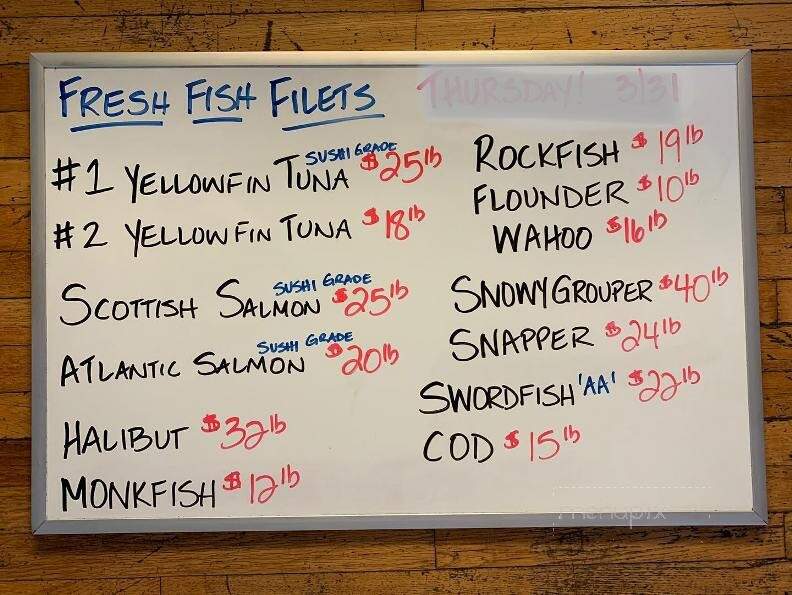 FRESH FISH FILETS
THURSDAY! 3/31
#1 YELLOWFIN TUNA SUSHI GRADE $25lb
#2 YELLOWFIN TUNA $18lb
SCOTTISH SALMON SUSHI GRADE $25lb
ATLANTIC SALMON SUSHI GRADE $20lb
HALIBUT $32lb
MONKFISH $12lb
ROCKFISH $19lb
FLOUNDER $10lb
WAHOO $16lb
SNOWY GROUPER $40lb
SNAPPER $24lb
SWORDFISH 'AA' $22lb
COD $15lb
menupix